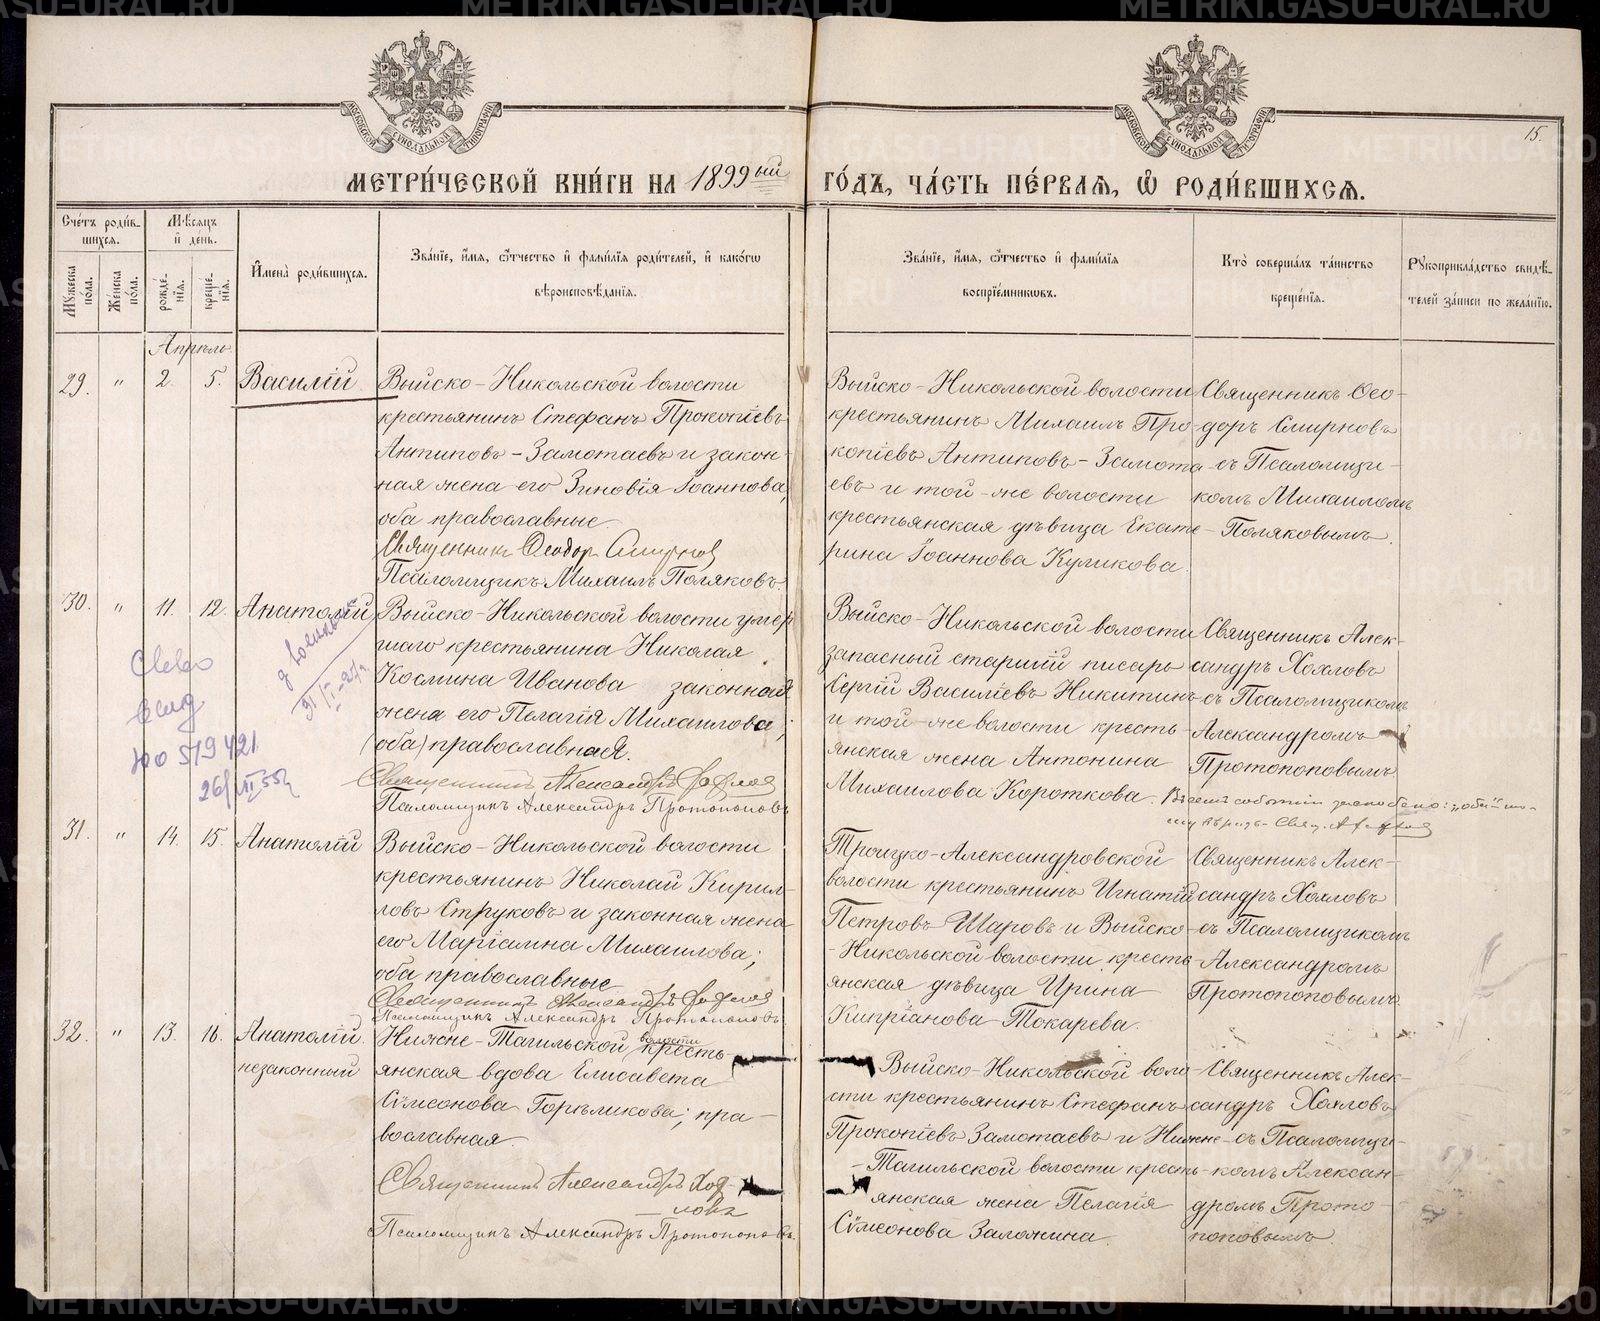 15.
МЕТРИ́ЧЕСКОЙ КНИ́ГИ НА 1899ый
ГО́ДЪ, ЧА́СТЬ ПЕ́РВАЯ, Ѡ РОДИ́ВШИХСЯ.
МОСКОВСКОЙ СѴНОДАЛЬНОЙ ТИПОГРАФІИ
МОСКОВСКОЙ СѴНОДАЛЬНОЙ ТИПОГРАФІИ
Счетъ родившихся.
Мужеска пола.
Женска пола.
Мѣсяцъ и день.
рожденія.
крещенія.
Имена родившихся.
Званіе, имя, отчество и фамилія родителей, и какогѡ
вѣроисповѣданія.
Званіе, имя, отчество и фамилія
воспріемниковъ.
Кто совершалъ таинство
крещенія.
Рукоприкладство свидѣ-
телей записи по желанію.
Апрѣль
29. " 2. 5. Василій
Выйско-Никольской волости
крестьянинъ Стефанъ Прокопіевъ
Антиповъ-Замотаевъ и закон-
ная жена его Зиновія Іоаннова,
оба православные
Священникъ Ѳеодор Смирнов
Псаломщикъ Михаилъ Поляковъ.
Выйско-Никольской волости
крестьянинъ Михаилъ Про-
копіевъ Антиповъ-Замота-
евъ и той-же волости
крестьянская дѣвица Екате-
рина Іоаннова Куликова.
Священникъ Ѳео-
доръ Смирновъ
съ Псаломщи-
комъ Михаиломъ
Поляковымъ.
30. " 11. 12. Анатолій
Выйско-Никольской волости умер
шаго крестьянина Николая
Космина Иванова законная
жена его Пелагія Михаилова;
(оба) православная.
Священникъ Александръ Хохлов
Псаломщикъ Александръ Протопоповъ
Выйско-Никольской волости
запасный старшій писарь
Сергій Василіевъ Никитинъ
и той-же волости кресть-
янская жена Антонина
Михаилова Короткова.
Священникъ Алек-
сандръ Хохловъ
съ Псаломщикомъ
Александромъ
Протопоповымъ
31/I-27г.
Юо 579421
26/VII 55г
31. " 14. 15. Анатолій
Выйско-Никольской волости
крестьянинъ Николай Кирил-
ловъ Струковъ и законная жена
его Маріамна Михаилова;
оба православные
Священникъ Александръ Хохлов
Псаломщикъ Александръ Протопоповъ.
Троицко-Александровской
волости крестьянин Игнатій
Петровъ Шаровъ и Выйско-
-Никольской волости кресть-
янская дѣвица Ирина
Кипріанова Токарева.
Священникъ Алек-
сандръ Хохловъ
съ Псаломщикомъ
Александромъ
Протопоповымъ
32. " 13. 16. Анатолій
незаконный
Нижне-Тагильской волости кресть-
янская вдова Елисавета
Сѵмеонова Горѣликова; пра-
вославная
Священникъ Александръ Хох-
ловъ
Псаломщикъ Александръ Протопоповъ.
Выйско-Никольской воло-
сти крестьянинъ Стефанъ
Прокопіевъ Замотаевъ и Нижне-
-Тагильской волости кресть-
янская жена Пелагія
Сѵмеонова Заложина
Священникъ Алек-
сандръ Хохловъ
съ Псаломщи-
комъ Алексан-
дромъ Прото-
поповымъ.
METRIKI.GASU-URAL.RU